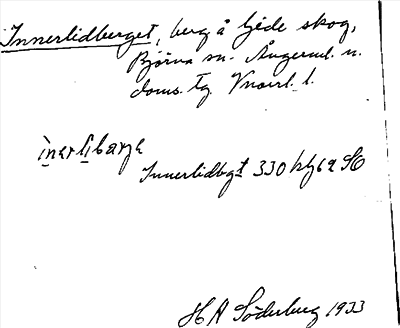 Innerlidberget, berg å Gide skog,
Björna sn. Ångerml. n.
doms. Tg Vnorrl. l.
ìnerlibarja
Innerlidbgt 330 SO
H A Söderberg 1933